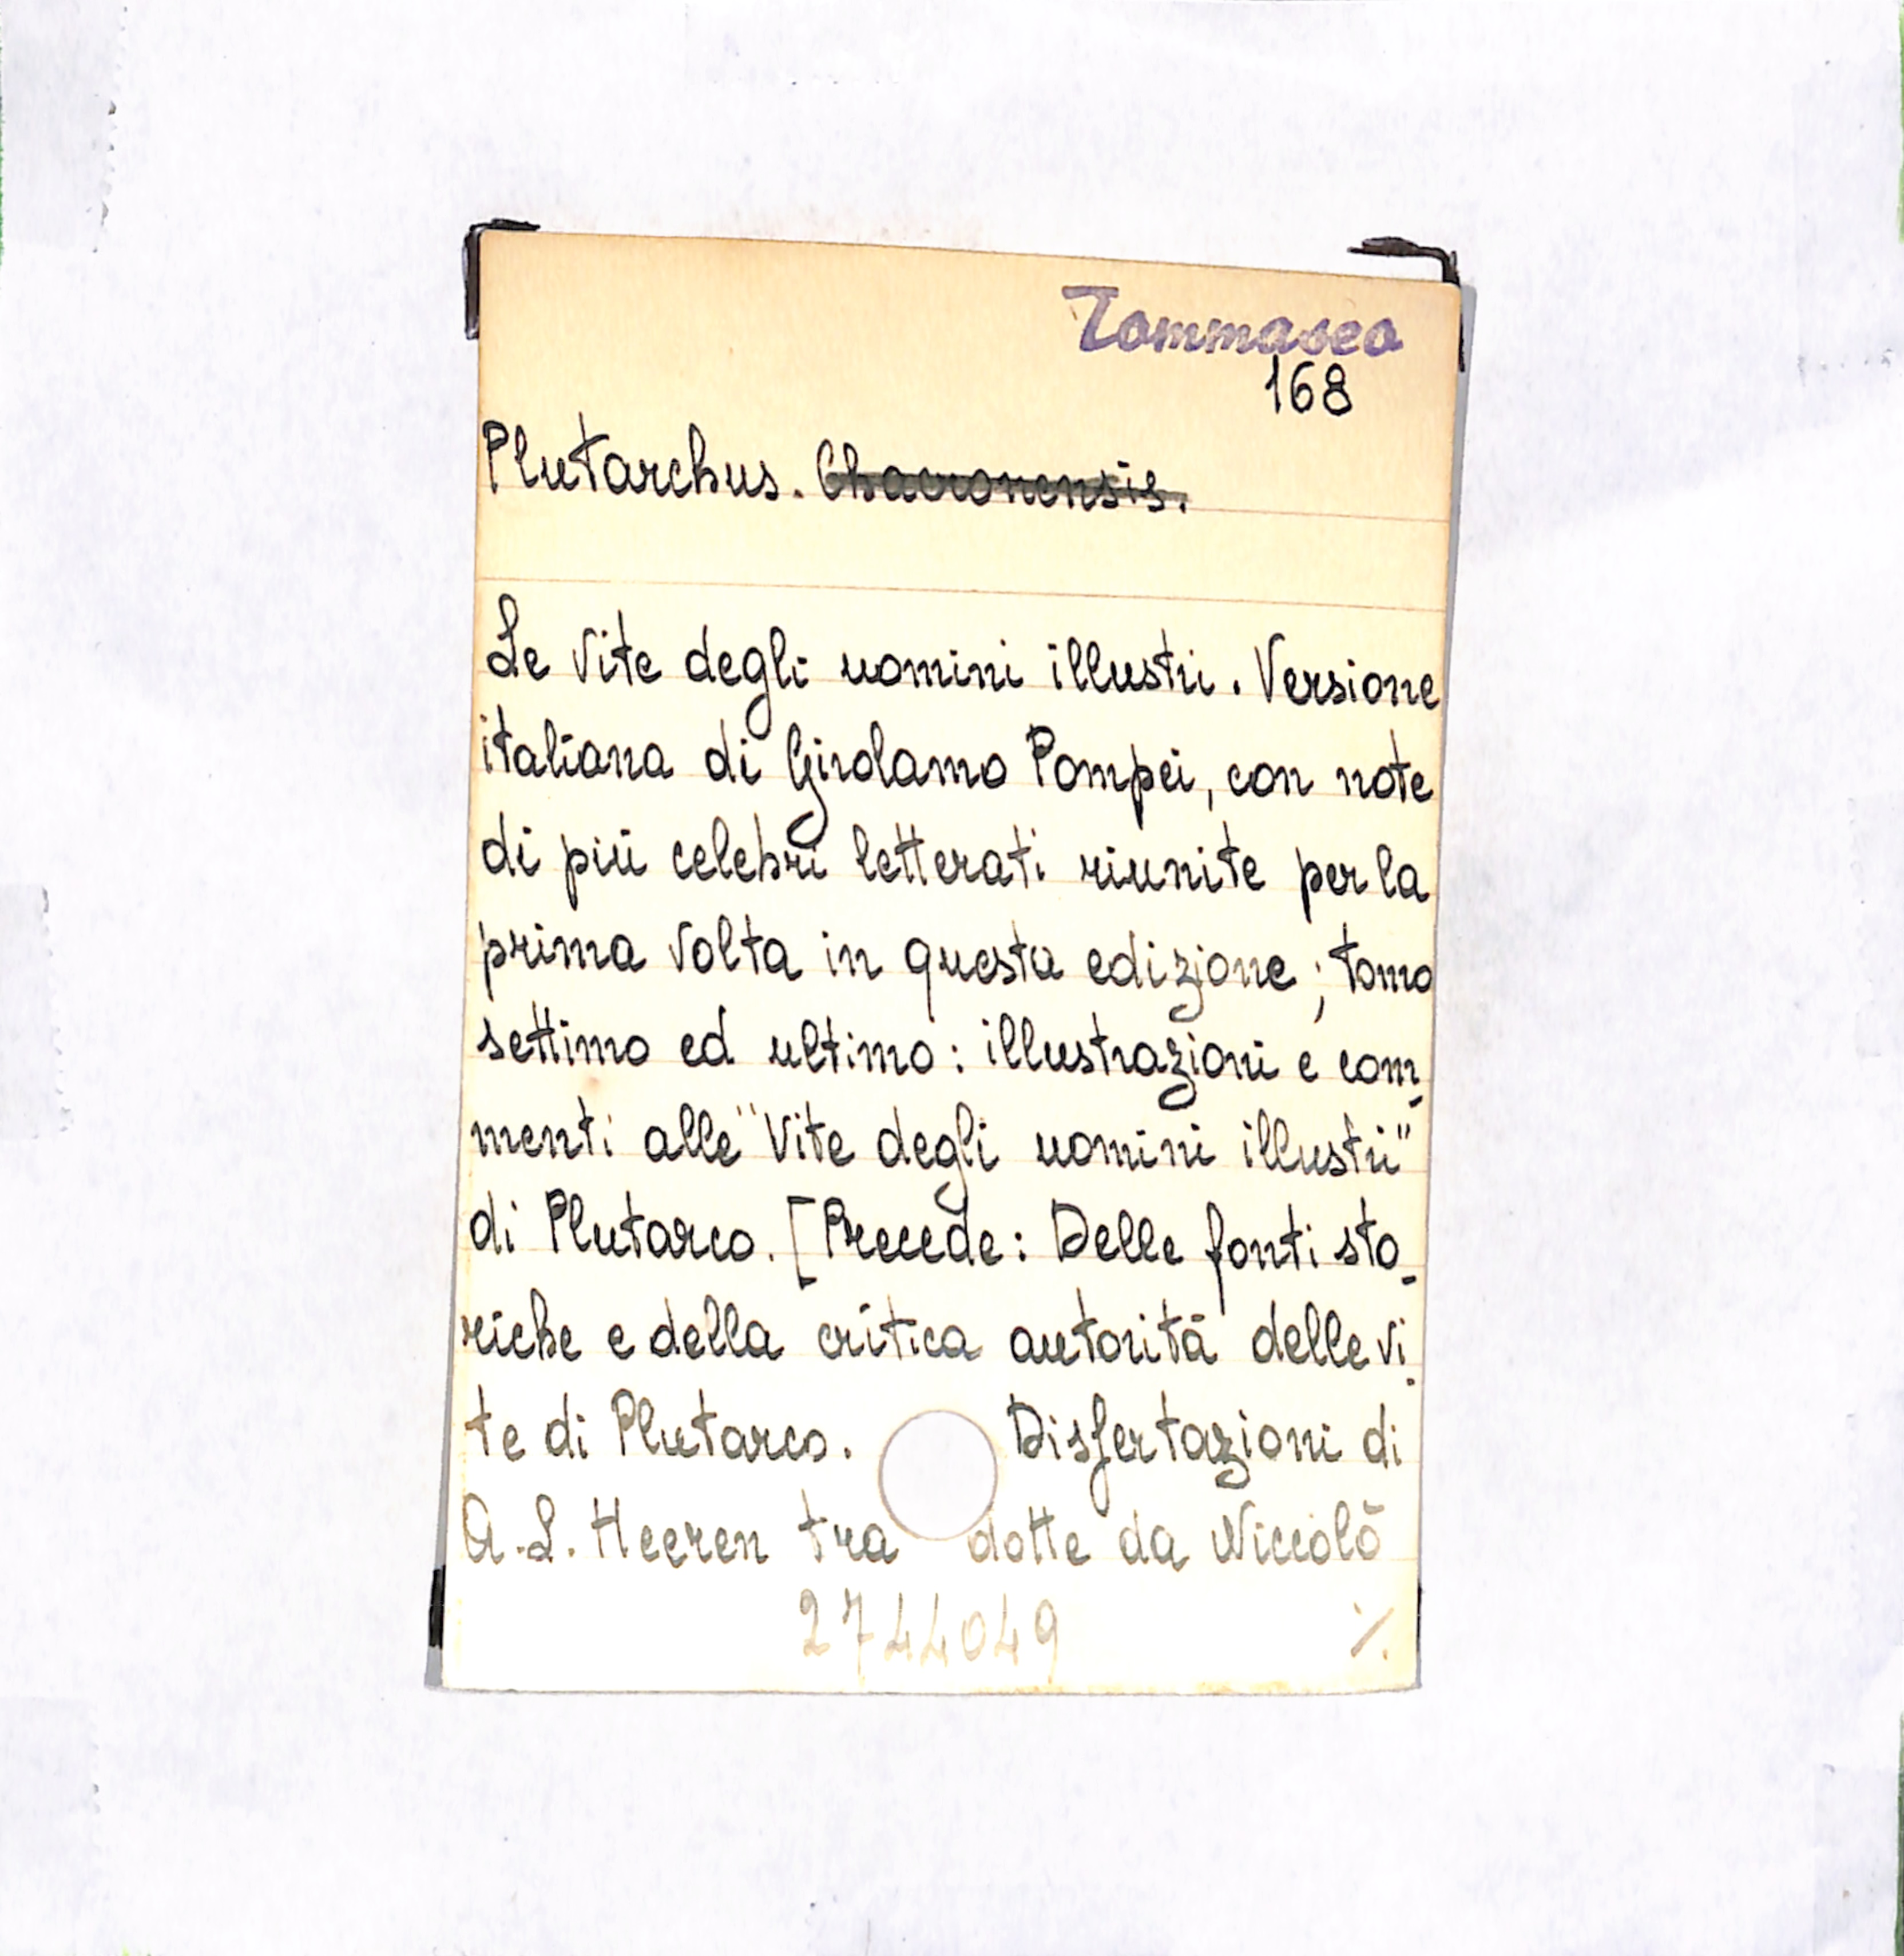 Tommaseo
168
Plutarchus. Chaeronensis.
Le Vite degli uomini illustri. Versione
italiana di Girolamo Pompei, con note
di più celebri letterati riunite per la
prima volta in questa edizione; tomo
settimo ed ultimo: illustrazioni e com-
menti alle "Vite degli uomini illustri"
di Plutarco. [Precede: Delle fonti sto-
riche e della critica autorità delle vi-
te di Plutarco. Disfertazioni di
A.L. Heeren tradotte da Niccolò
2744049 ./.